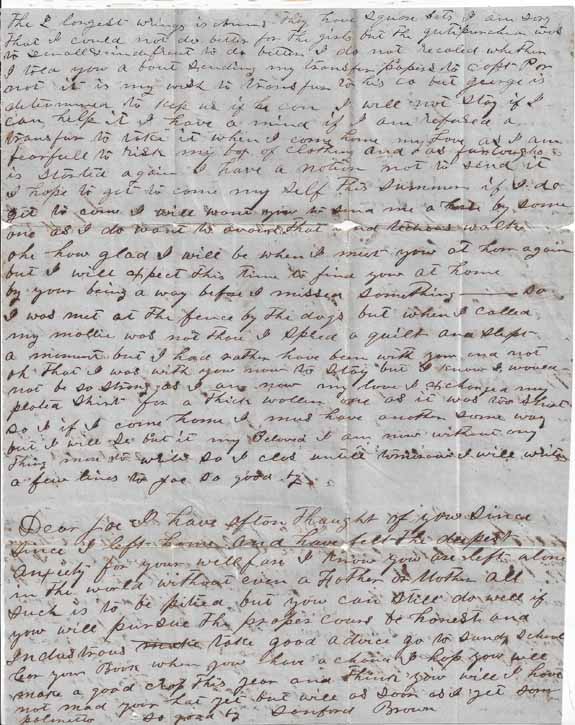 The 2 longest wrings is mine they have square sets I am sory
that I could not do better for the girls but the gutipercha was
to small & indifrent to do better I do not recolect whether
I told you a bout sending my transfer papers to Capt Por
not it is my wish to transfer to his co but george is
determined to keep us if he can I will not stay if I
can help it I have a mind if I am refused a
transfer to take it when I come home my love as I am
fearfull to risk my box of clothing and as furloughs
is started again I have a notion not to send it
I hope to get to come my self this summer if I do
get to come I will want you to send me a by some
one as I do want to avoid that tedious walk
oh how glad I will be when I meet you at hom again
but I will expect this time to find you at home
by your being a way before I missed something so
I was met at the fence by the dogs but when I called
my mollie was not there I spred a quilt and slept
a moment but I had rather have been with you and not
oh that I was with you now to stay but I know I would
not be so strong as I am now my love I exchanged my
plated shirt for a thick wollen one as it was too short
so if I come home I mus have another some way
but I will se but it my Beloved I am now without any
thing more to write so I clos until tomorrow I will write
a few lines to Joe so good by
Dear Joe I have often thought of you since
since I left home and have felt the deepest
anxiety for your wellfare I know you are left alone
in the world without even a Father or Mother all
such is to be pitied but you can still do well if
you will pursue the proper cours be honest and
Industrous take good advice go to sunday school
Cor your Book when you have a chance I hope you will
make a good crop this year and think you will I have
not mad your hat yet but will as soon as I get som
palmeto so good by Sanford Brown